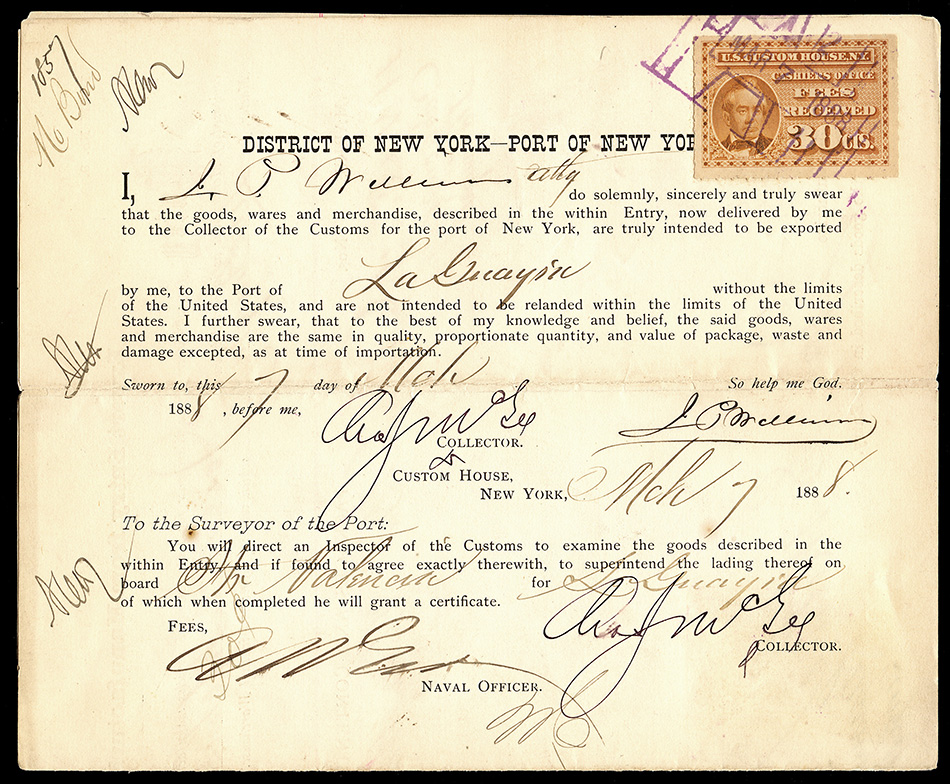 1857
New
U.S. CUSTOM HOUSE, N.Y.
CASHIERS OFFICE
FEES
RECEIVED
30 CTS.
MAR 7 1888
DISTRICT OF NEW YORK—PORT OF NEW YOR
I, J. P. William atty do solemnly, sincerely and truly swear
that the goods, wares and merchandise, described in the within Entry, now delivered by me
to the Collector of the Customs for the port of New York, are truly intended to be exported
by me, to the Port of La Guayra without the limits
of the United States, and are not intended to be relanded within the limits of the United
States. I further swear, that to the best of my knowledge and belief, the said goods, wares
and merchandise are the same in quality, proportionate quantity, and value of package, waste and
damage excepted, as at time of importation.
Sworn to, this 7 day of Mch So help me God.
1888, before me, Chas J McGee J. P. William
COLLECTOR.
CUSTOM HOUSE,
NEW YORK, Mch 7 1888.
To the Surveyor of the Port:
You will direct an Inspector of the Customs to examine the goods described in the
within Entry, and if found to agree exactly therewith, to superintend the lading thereof on
board Str Valencia for La Guayra
of which when completed he will grant a certificate.
FEES, Chas J McGee
20
COLLECTOR.
NAVAL OFFICER.